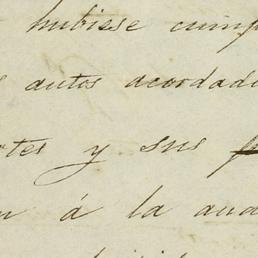 hubiese cump
autos acordad
rtes y sus
n á la aud